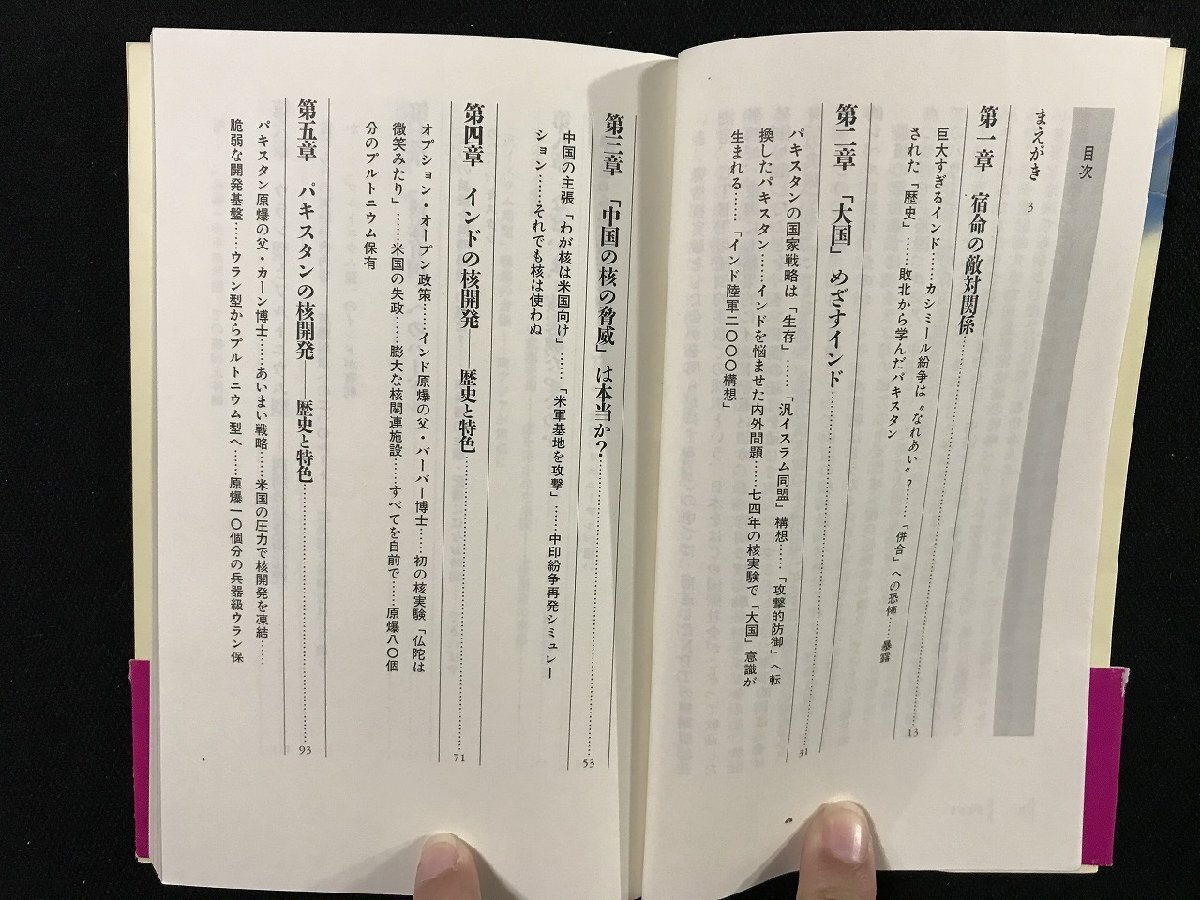 目次
まえがき 3
第一章 宿命の敵対関係……………13
巨大すぎるインド……カシミール紛争は〝なれあい〟？……「併合」への恐怖……暴露
された「歴史」……敗北から学んだパキスタン
第二章 「大国」めざすインド……………31
パキスタンの国家戦略は「生存」……「汎イスラム同盟」構想……「攻撃的防御」へ転
換したパキスタン……インドを悩ませた内外問題……七四年の核実験で「大国」意識が
生まれる……「インド陸軍二〇〇〇構想」
第三章 「中国の核の脅威」は本当か？……………53
中国の主張「わが核は米国向け」……「米軍基地を攻撃」……中印紛争再発シミュレー
ション……それでも核は使わぬ
第四章 インドの核開発――歴史と特色……………71
オプション・オープン政策……インド原爆の父・バーバー博士……初の核実験「仏陀は
微笑みたり」……米国の失政……膨大な核関連施設……すべてを自前で……原爆八〇個
分のプルトニウム保有
第五章 パキスタンの核開発――歴史と特色……………93
パキスタン原爆の父・カーン博士……あいまい戦略……米国の圧力で核開発を凍結……
脆弱な開発基盤……ウラン型からプルトニウム型へ……原爆一〇個分の兵器級ウラン保